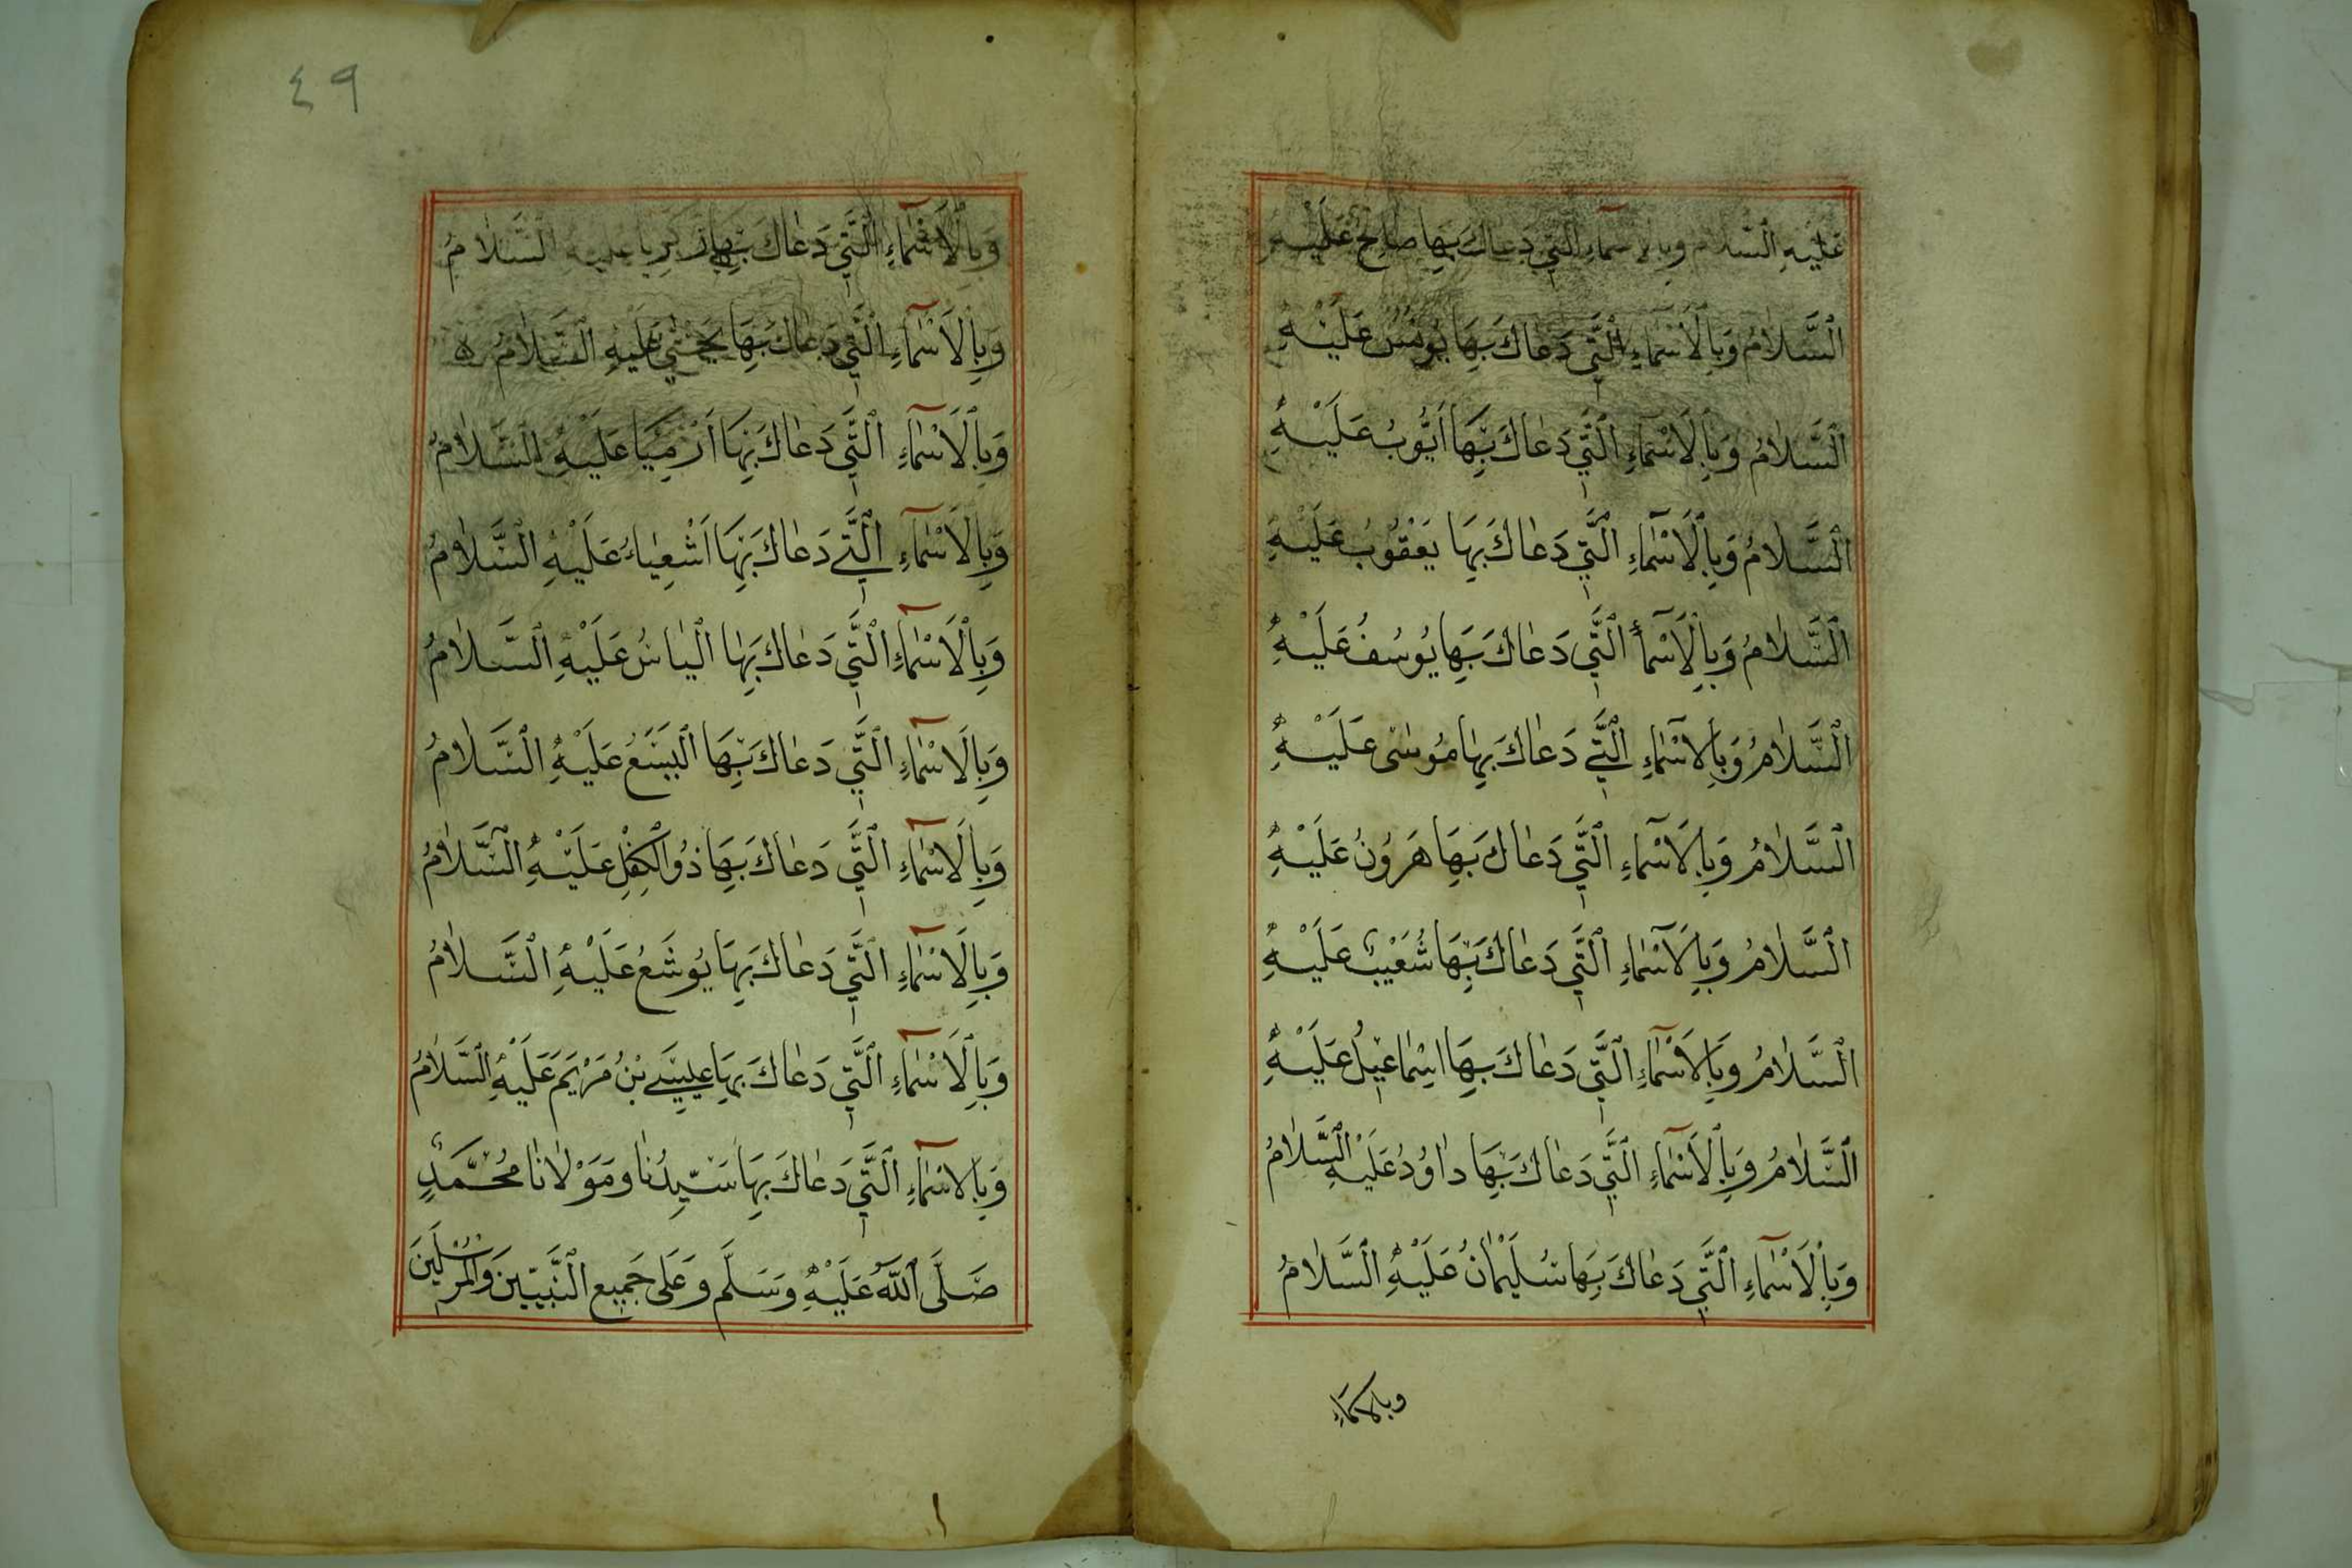 عَلَيْهِ السَّلَامُ وَبِالْاَسْمَآءِ الَّتِي دَعَاكَ بِهَا صَالِحٌ عَلَيْهِ
اَلسَّلَامُ وَبِالْاَسْمَآءِ الَّتِي دَعَاكَ بِهَا يُونُسُ عَلَيْهِ
اَلسَّلَامُ وَبِالْاَسْمَآءِ الَّتِي دَعَاكَ بِهَا اَيُّوبُ عَلَيْهِ
اَلسَّلَامُ وَبِالْاَسْمَآءِ الَّتِي دَعَاكَ بِهَا يَعْقُوبُ عَلَيْهِ
اَلسَّلَامُ وَبِالْاَسْمَآءِ الَّتِي دَعَاكَ بِهَا يُوسُفُ عَلَيْهِ
اَلسَّلَامُ وَبِالْاَسْمَآءِ الَّتِي دَعَاكَ بِهَا مُوسٰى عَلَيْهِ
اَلسَّلَامُ وَبِالْاَسْمَآءِ الَّتِي دَعَاكَ بِهَا هَرُونُ عَلَيْهِ
اَلسَّلَامُ وَبِالْاَسْمَآءِ الَّتِي دَعَاكَ بِهَا شُعَيْبٌ عَلَيْهِ
اَلسَّلَامُ وَبِالْاَسْمَآءِ الَّتِي دَعَاكَ بِهَا اِسْمَاعِيْلُ عَلَيْهِ
اَلسَّلَامُ وَبِالْاَسْمَآءِ الَّتِي دَعَاكَ بِهَا دَاوُدُ عَلَيْهِ السَّلَامُ
وَبِالْاَسْمَآءِ الَّتِي دَعَاكَ بِهَا سُلَيْمَانُ عَلَيْهِ السَّلَامُ
وبالاسماء
٤٩
وَبِالْاَسْمَآءِ الَّتِي دَعَاكَ بِهَا زَكَرِيَّا عَلَيْهِ السَّلَامُ
وَبِالْاَسْمَآءِ الَّتِي دَعَاكَ بِهَا يَحْيٰي عَلَيْهِ السَّلَامُ ه
وَبِالْاَسْمَآءِ الَّتِي دَعَاكَ بِهَا اَرْمِيَا عَلَيْهِ السَّلَامُ
وَبِالْاَسْمَآءِ الَّتِي دَعَاكَ بِهَا اَشْعِيَاءُ عَلَيْهِ السَّلَامُ
وَبِالْاَسْمَآءِ الَّتِي دَعَاكَ بِهَا اَلْيَاسُ عَلَيْهِ السَّلَامُ
وَبِالْاَسْمَآءِ الَّتِي دَعَاكَ بِهَا الْيَسَعُ عَلَيْهِ السَّلَامُ
وَبِالْاَسْمَآءِ الَّتِي دَعَاكَ بِهَا ذُو الْكِفْلِ عَلَيْهِ السَّلَامُ
وَبِالْاَسْمَآءِ الَّتِي دَعَاكَ بِهَا يُوشَعُ عَلَيْهِ السَّلَامُ
وَبِالْاَسْمَآءِ الَّتِي دَعَاكَ بِهَا عِيسَى بْنُ مَرْيَمَ عَلَيْهِ السَّلَامُ
وَبِالْاَسْمَآءِ الَّتِي دَعَاكَ بِهَا سَيِّدُنَا وَمَوْلَانَا مُحَمَّدٌ
صَلَّى اللّٰهُ عَلَيْهِ وَسَلَّمَ وَعَلَى جَمِيعِ النَّبِيِّينَ وَالْمُرْسَلِينَ